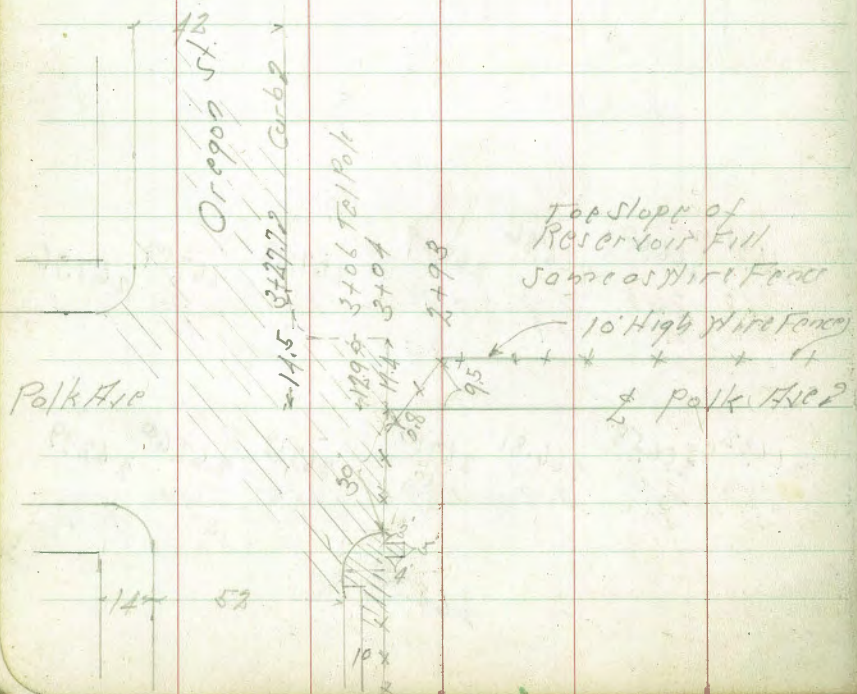 42
Oregon St.
Curb?
3+27.72
14.5
3+06 Tel Pole
3+04
12.9
11.4
2+93
Toe Slope of
Reservoir Fill
Same as Wire Fence
10' High Wire Fence
9.5
0.8
Polk Ave
℄ Polk Ave?
30'
4
14
52
10